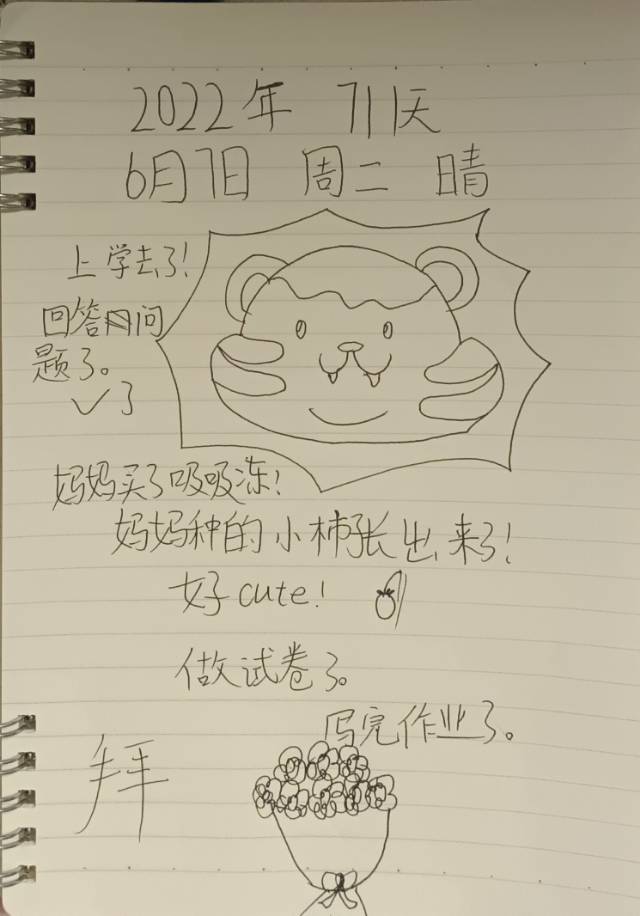 2022年 711天
6月7日 周二 晴
上学去了!
回答问
题了。
✓了
妈妈买了吸吸冻!
妈妈种的小柿张出来了!
好cute!
做试卷了。
写完作业了。
拜